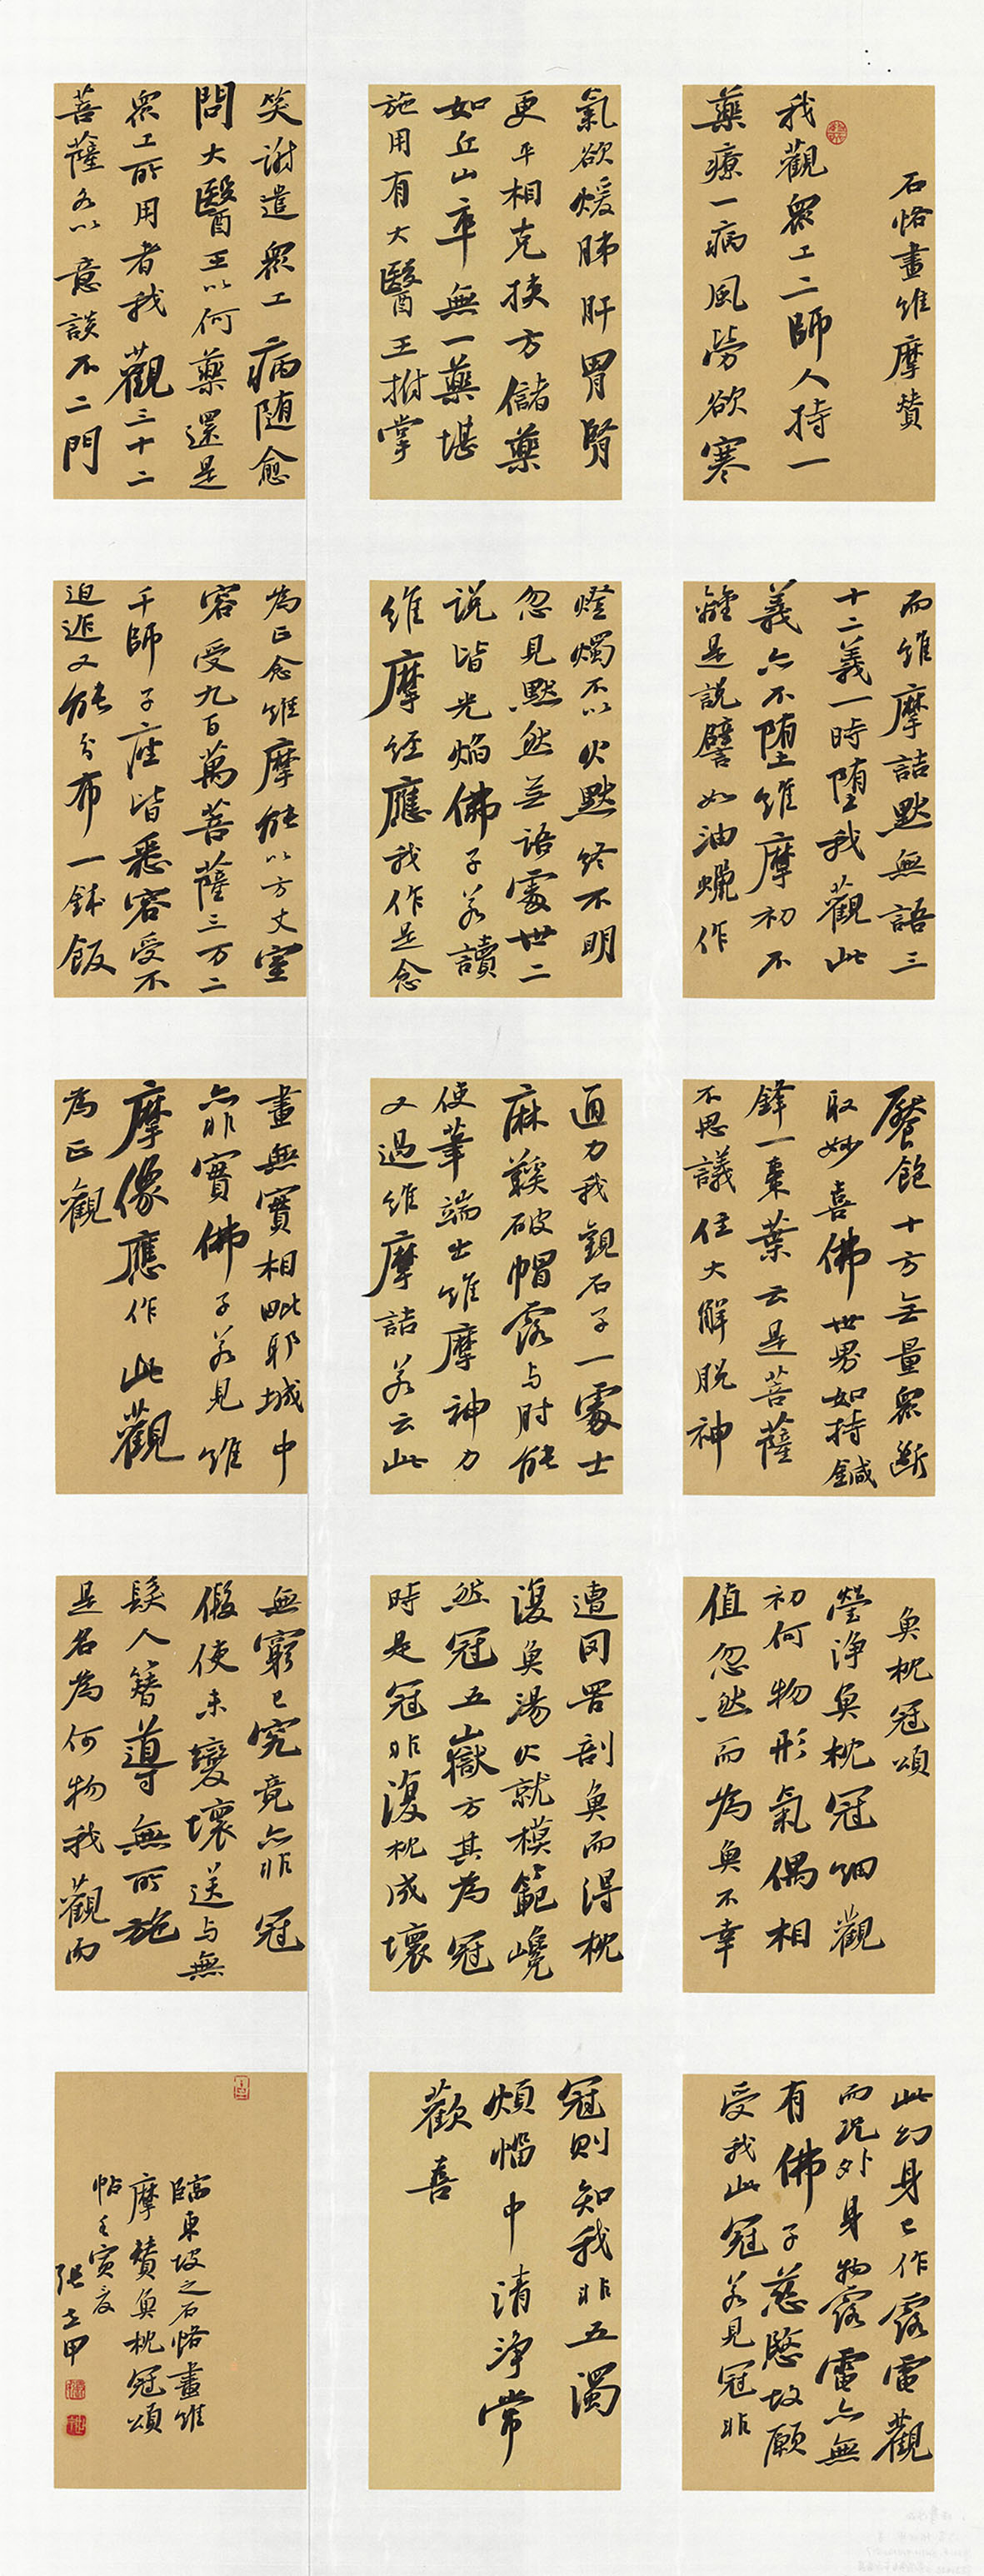 石恪畫維摩贊
我觀眾工二師人持一
藥療一病風勞欲寒
氣欲煖肺肝胃腎
更平相克挾方儲藥
如丘山卒無一藥堪
施用有大醫王拊掌
笑謝遣眾工病随愈
問大醫王以何藥還是
眾工所用者我觀三十二
菩薩各以意談不二門
而維摩詰默無語三
十二義一時墮我觀此
義亦不墮維摩初不
離是説譬如油蠟作
燈燭不以火點終不明
忽見默然無語處世二
説皆光焰佛子若讀
維摩經應我作是念
為正念維摩能以方丈室
容受九百萬菩薩三万二
千師子座皆悉容受不
迫迮又能分布一鉢飯
饜飽十方無量眾斷
取妙喜佛世界如持鍼
鋒一棗葉云是菩薩
不思議住大解脫神
通力我觀石子一處士
麻鞵破帽露与肘能
使筆端出維摩神力
又過維摩詰若云此
畫無實相毗耶城中
亦非實佛子若見維
摩像應作此觀
為正觀
魚枕冠頌
瑩淨魚枕冠細觀
初何物形氣偶相
值忽然而為魚不幸
遭罔罟剖魚而得枕
復魚湯火就模範巉
然冠五嶽方其為冠
時是冠非復枕成壞
無窮已究竟亦非冠
假使未變壞送与無
髮人簪導無所施
是名為何物我觀而
此幻身已作露電觀
而况外身物露電亦無
有佛子慈愍故願
受我此冠若見冠非
冠則知我非五濁
煩惱中清淨常
歡喜
臨東坡之石恪畫維
摩贊魚枕冠頌
帖壬寅夏
張甲